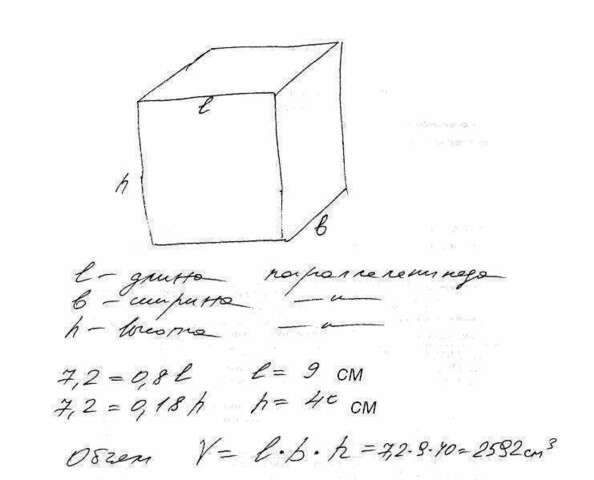 l
h
в
l – длина параллелепипеда
в – ширина —"—
h – высота —"—
7,2 = 0,8l l = 9 см
7,2 = 0,18h h = 40 см
Объем V = l·b·h = 7,2·9·40 = 2592 см³